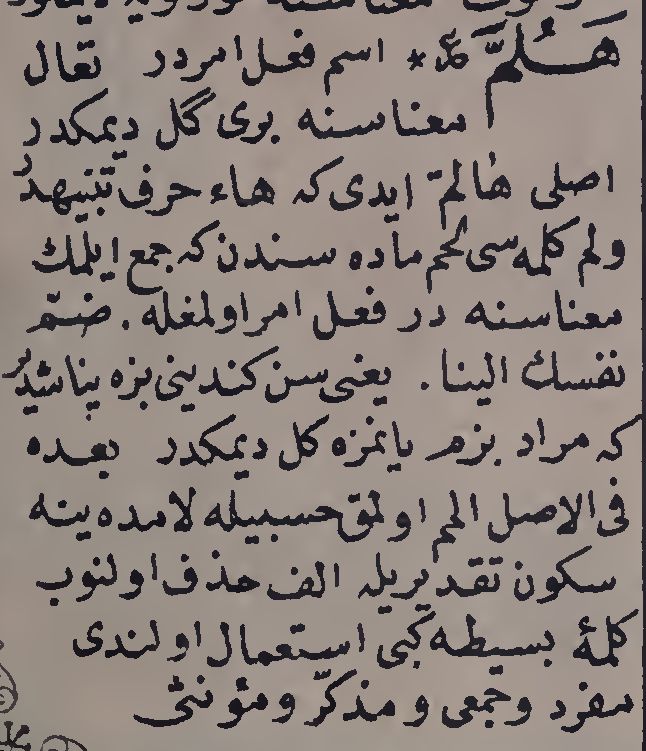 هَلُمَّ * اسم فعل امردر تعال
معناسنه بری گل دیمکدر
اصلی هالم ایدی که هاء حرف تنبیهدر
ولم کلمه سی لحم ماده سندن که جمع ایلمك
معناسنه در فعل امر اولمغله . ضمّ
نفسك الینا . یعنی سن کندینی بزه
که مراد بزم یانمزه کل دیمکدر بعده
فی الاصل الم اولمق حسبیله لامده ینه
سکون تقدیریله الف حذف اولنوب
کلمۀ بسیطه کبی استعمال اولندی
مفرد وجمعی و مذکّر ومؤنثی